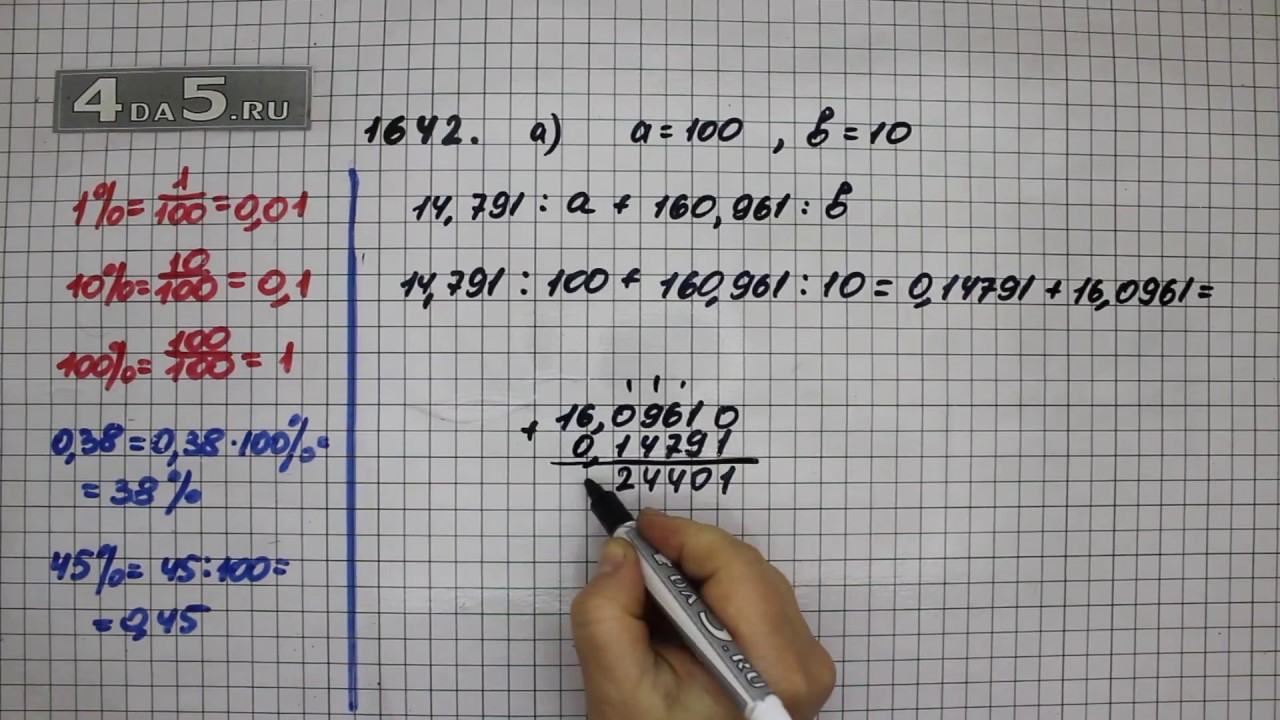 4DA5.RU
1642. а) a = 100 , b = 10
14,791 : a + 160,961 : b
14,791 : 100 + 160,961 : 10 = 0,14791 + 16,0961 =
1 1 .
+ 16,09610
0,14791
24401
1% = 1/100 = 0,01
10% = 10/100 = 0,1
100% = 100/100 = 1
0,38 = 0,38 · 100% =
= 38%
45% = 45 : 100 =
= 0,45
4DA5.RU